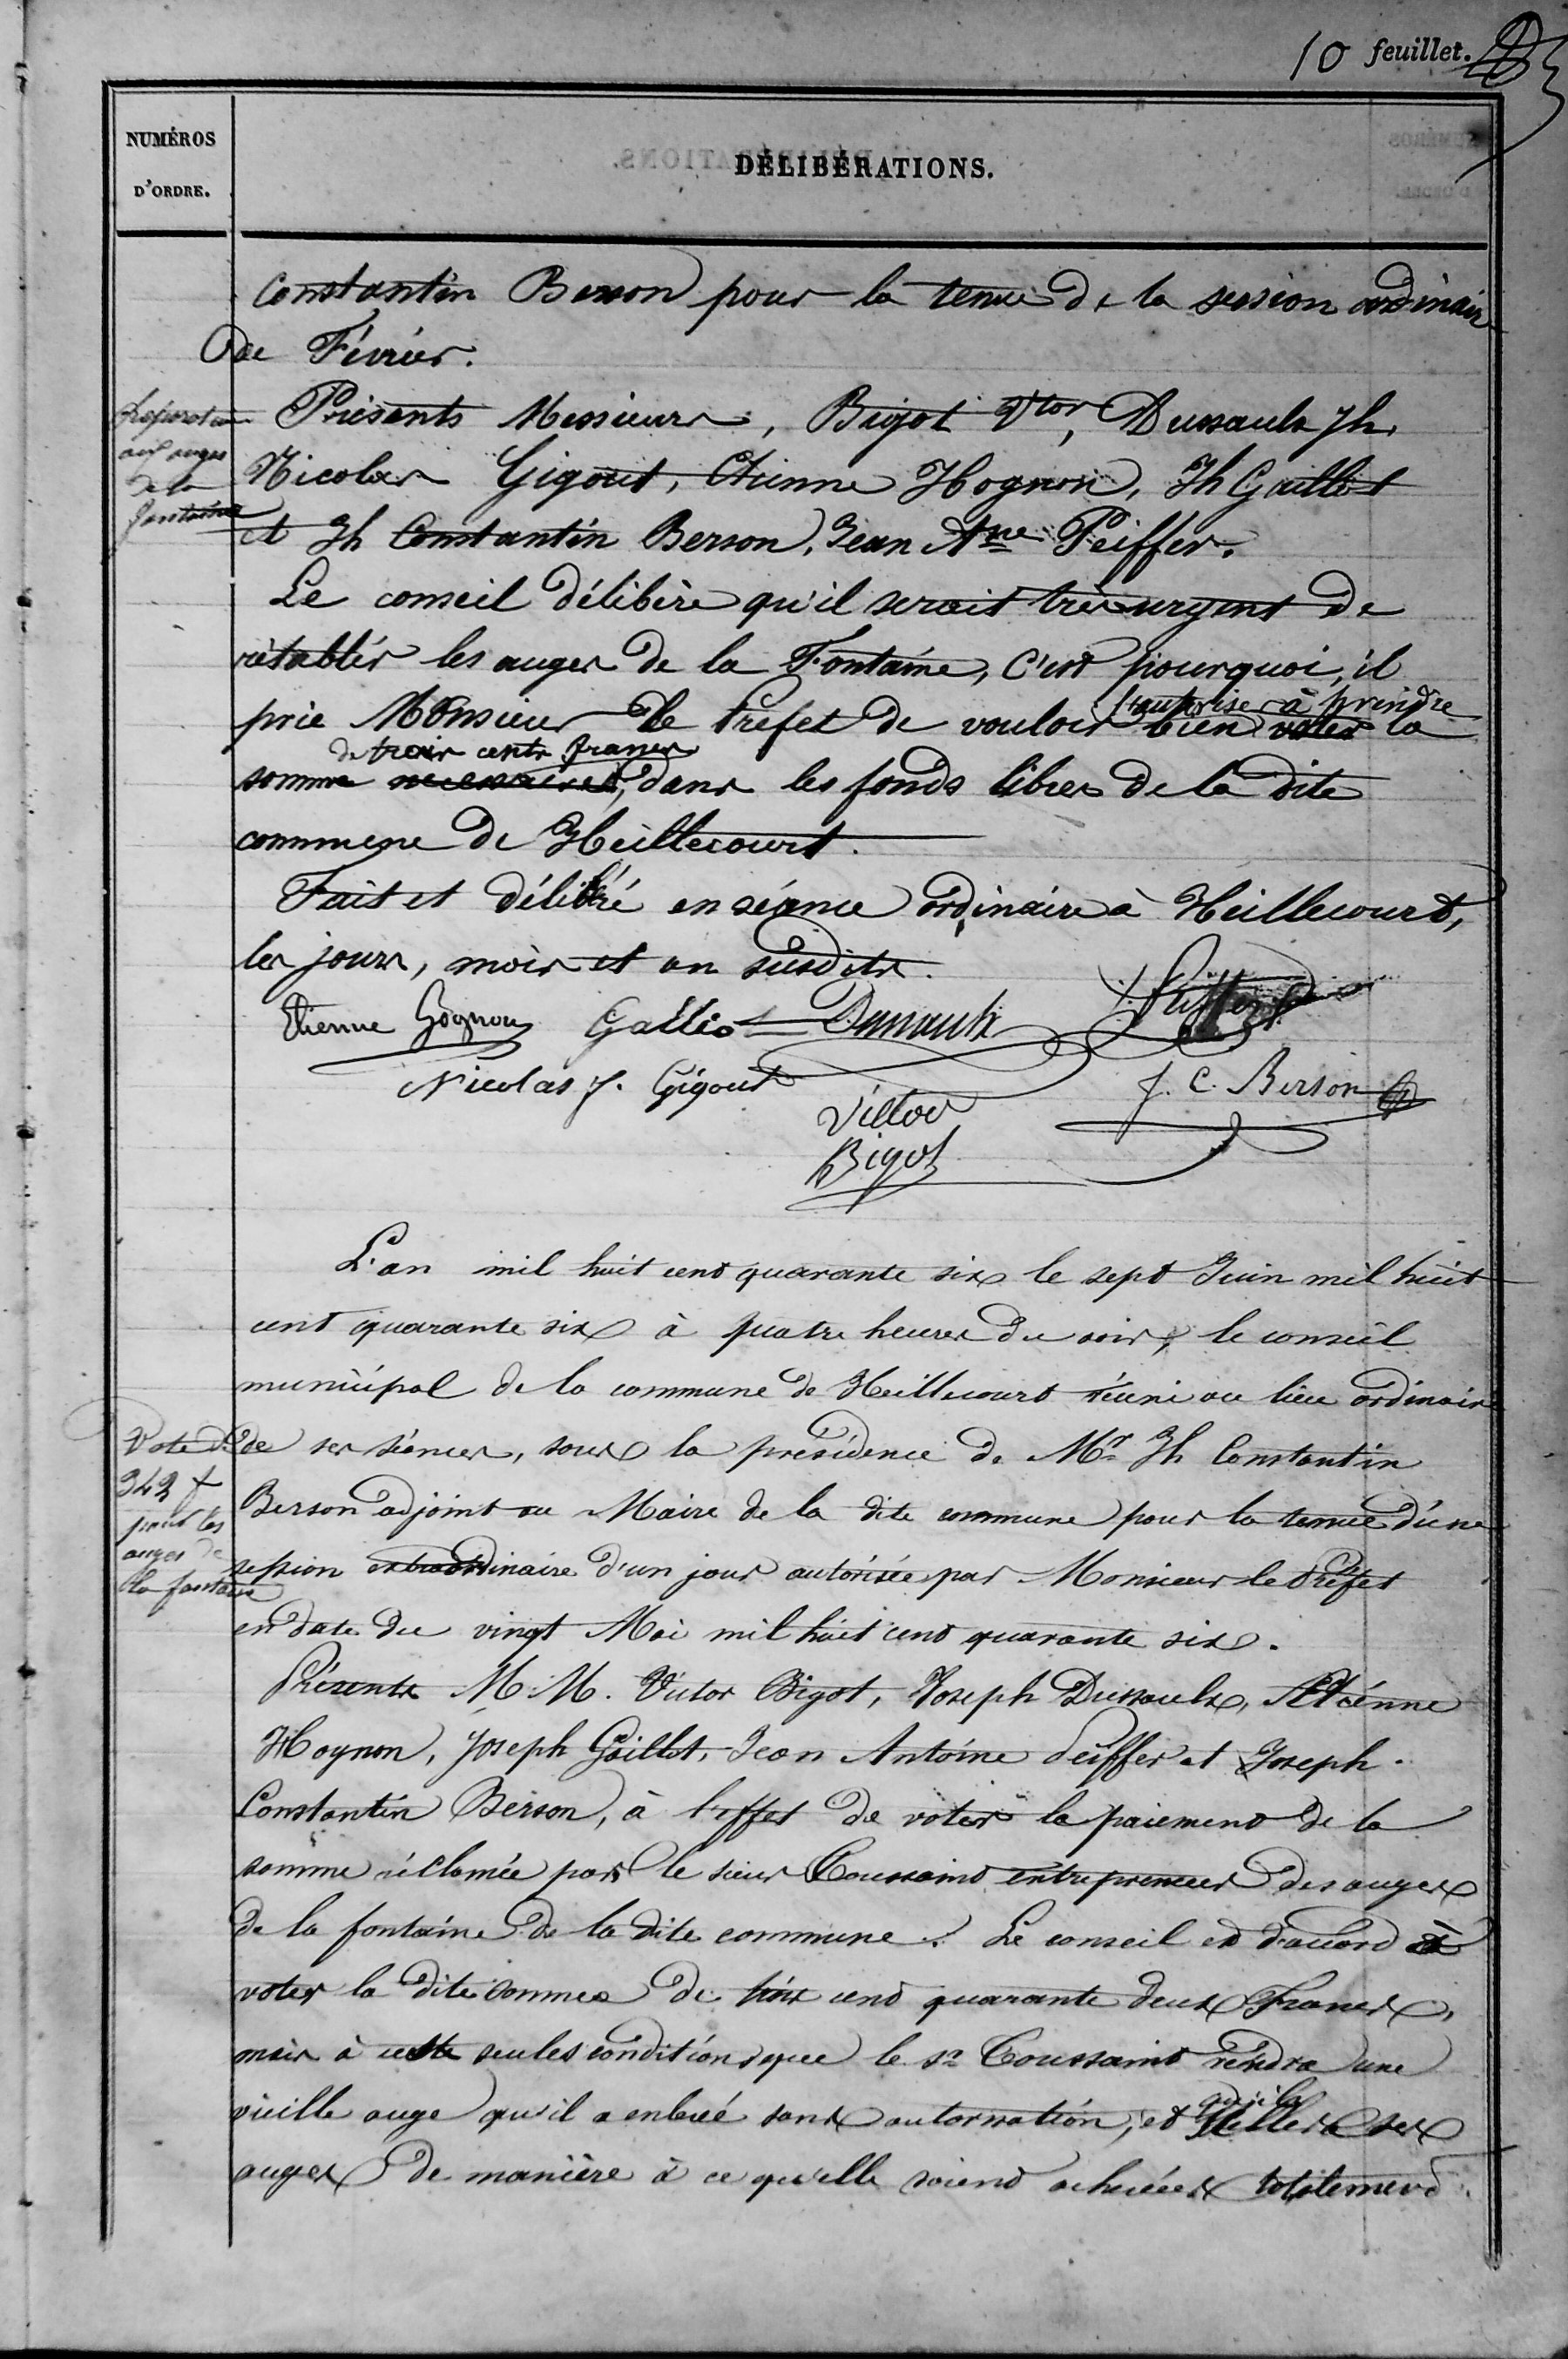 10 feuillet.
NUMÉROS
D'ORDRE.
DÉLIBÉRATIONS.
Constantin Berson pour la tenue de la session ordinaire
de Février.
Réparation
aux auges
de la
fontaine
Présents Messieurs, Bigot Vtor, Dussaulx Jh
Nicolas Gigout, Etienne Hognon, Jh Gaillot
et Jh Constantin Berson, Jean Atne Peiffer.
Le conseil délibère qu'il serait très urgent de
rétablir les auges de la Fontaine, C'est pourquoi, il
prie Monsieur le Préfet de vouloir bien voter la
l'autoriser à prendre
de trois cents francs
somme necessaire, dans les fonds libres de la dite
commune de Heillecourt.
Fait et délibéré en séance ordinaire à Heillecourt,
les jours, mois et an susdits.
Etienne Hognon Gaillot Dussaulx J. Peiffer
Nicolas J. Gigout J. C. Berson
Victor
Bigot
L'an mil huit cent quarante six le sept Juin mil huit
cent quarante six à quatre heures du soir, le conseil
municipal de la commune de Heillecourt réuni au lieu ordinaire
Vote de
342 f
pour les
auges de
la fontaine
de ses séances, sous la présidence de Mr Jh Constantin
Berson adjoint au Maire de la dite commune pour la tenue d'une
session extraordinaire d'un jour autorisée par Monsieur le Préfet
en date du vingt Mai mil huit cent quarante six.
Présents M.M. Victor Bigot, Joseph Dussaulx, Etienne
Hognon, Joseph Gaillot, Jean Antoine Peiffer et Joseph
Constantin Berson, à l'effet de voter le paiement de la
somme réclamée par le sieur Toussaint entrepreneur des auges
de la fontaine de la dite commune. Le conseil est d'accord à
voter la dite somme de trois cent quarante deux Francs,
mais à cette seules conditions que le sr Toussaint rendra une
vieille auge qu'il a enlevé sans autorisation, et qu'il taillera ses
auges de manière à ce qu'elle soient achevées totalement